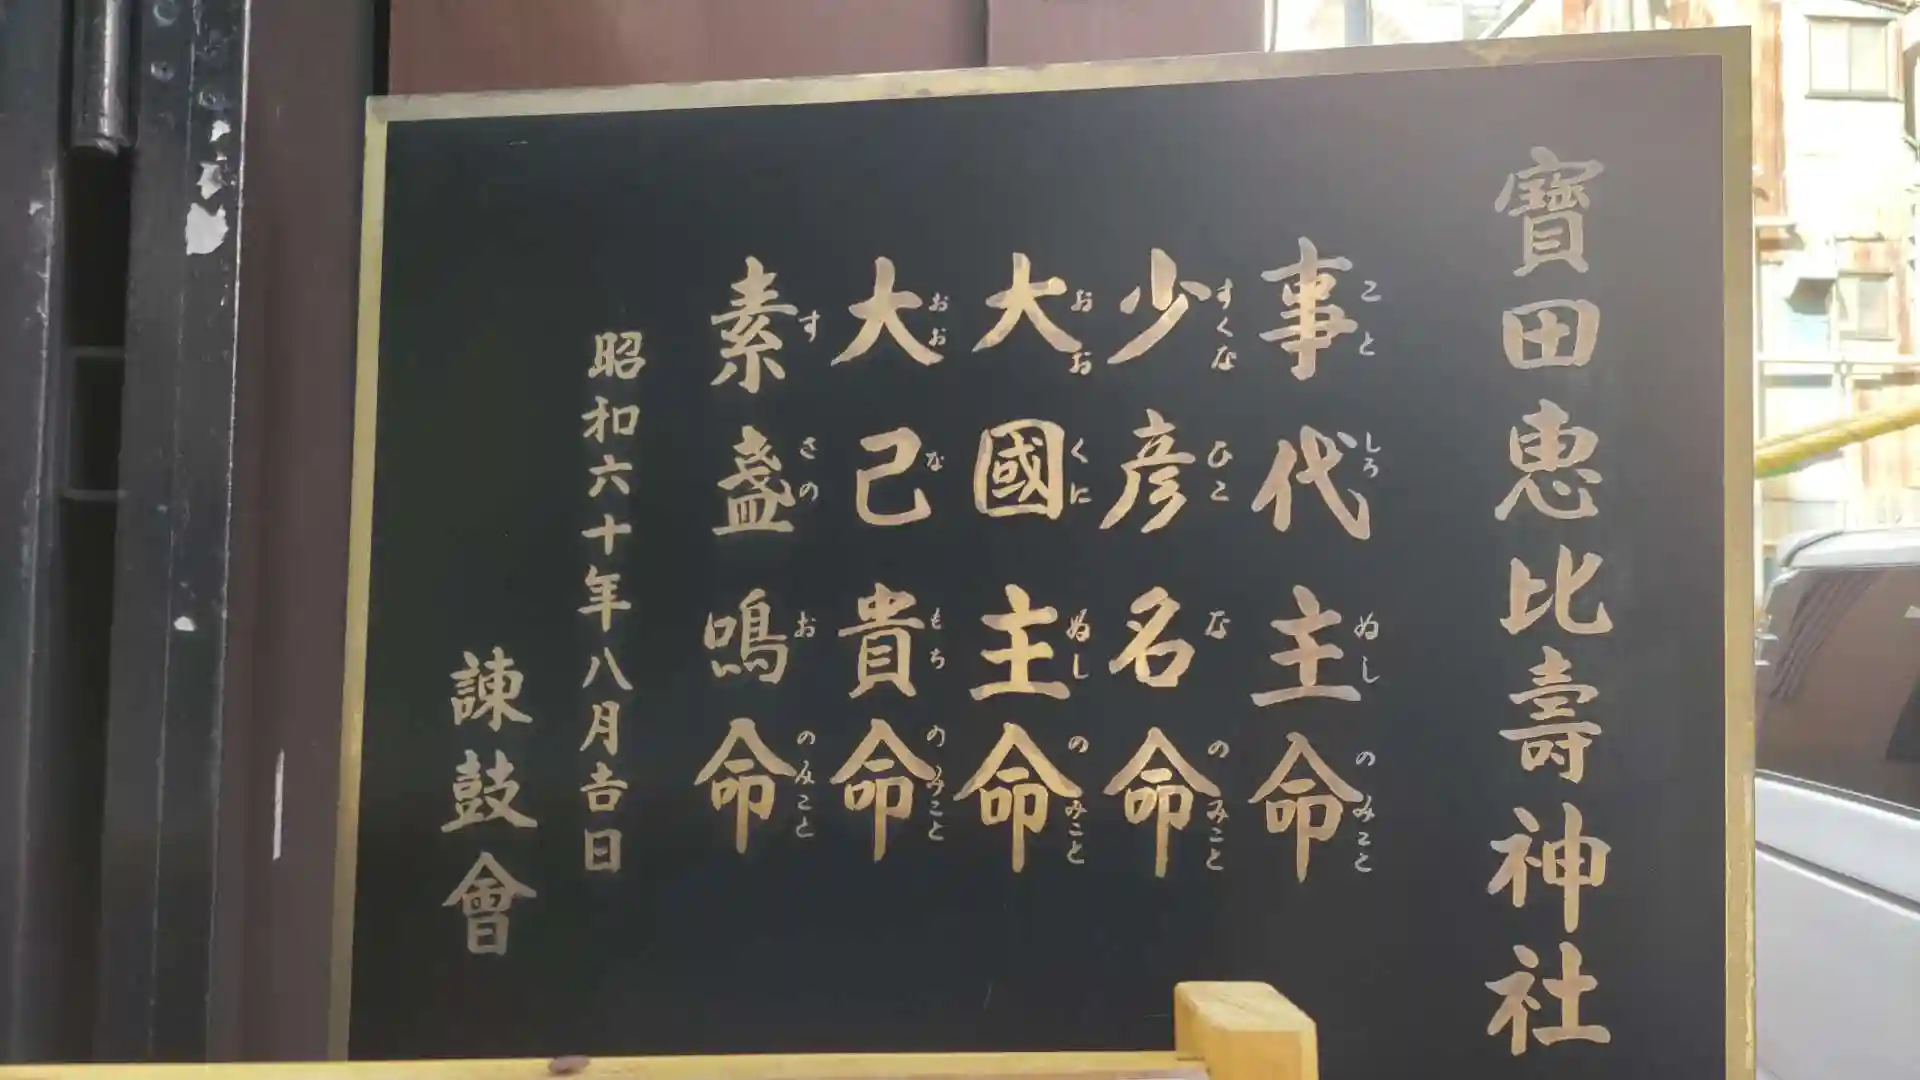 寶田恵比壽神社
事代主命
ことしろぬしのみこと
少彦名命
すくなひこなのみこと
大國主命
おおくにぬしのみこと
大己貴命
おおなもちのみこと
素盞鳴命
すさのおのみこと
昭和六十年八月吉日
諌鼓會